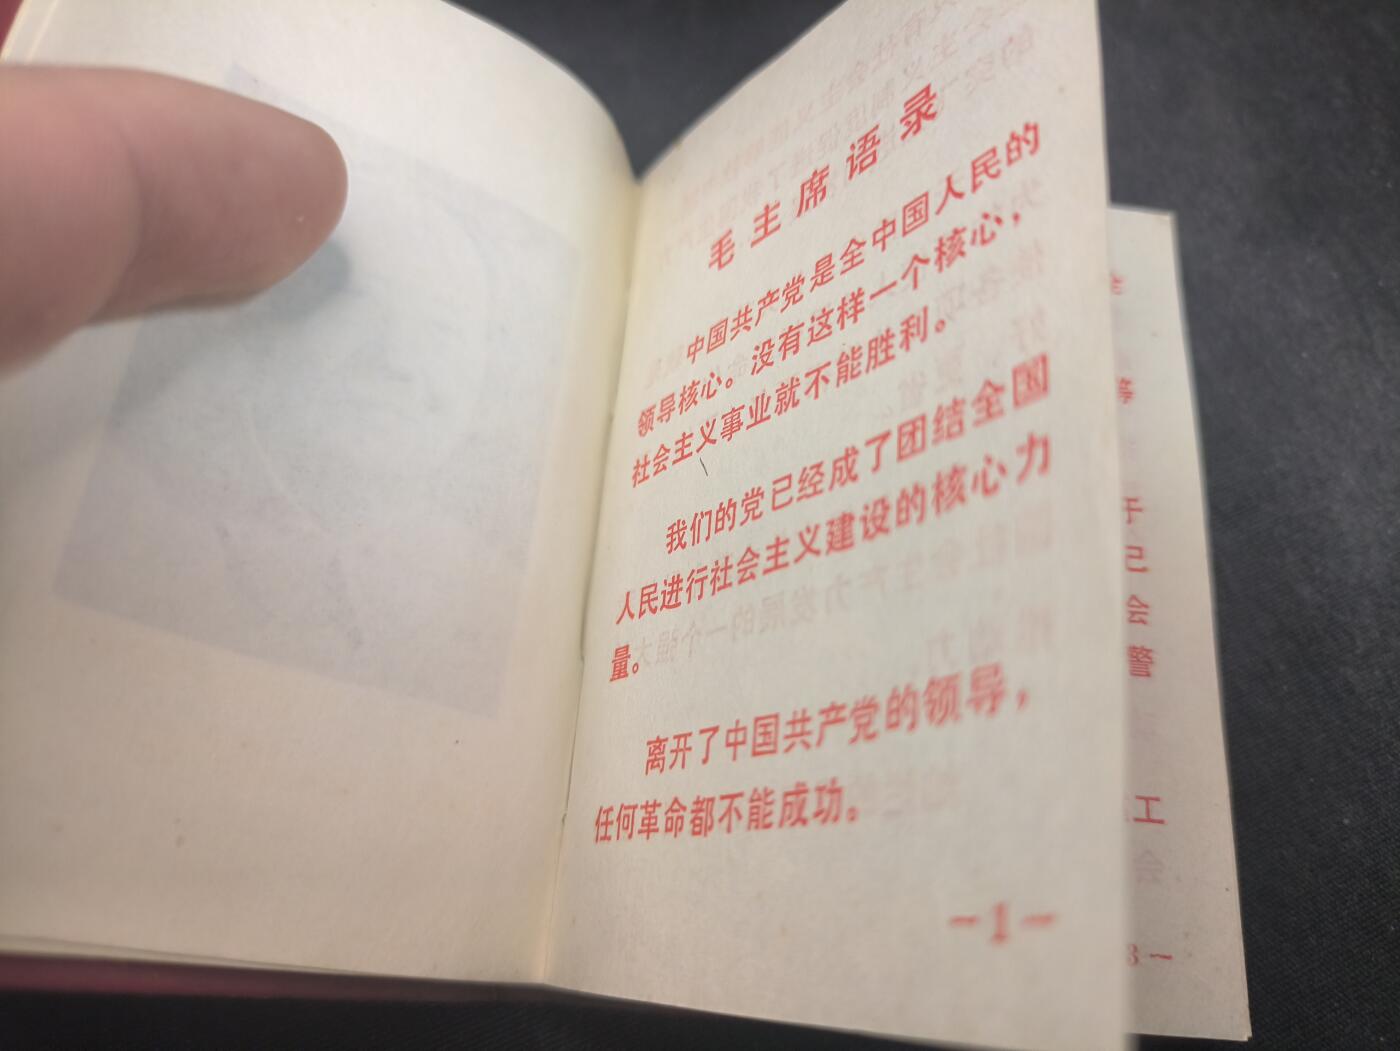 毛主席语录
中国共产党是全中国人民的
领导核心。没有这样一个核心，
社会主义事业就不能胜利。
我们的党已经成了团结全国
人民进行社会主义建设的核心力
量。
离开了中国共产党的领导，
任何革命都不能成功。
－1－
等
于
己
会
警
工
会
3－